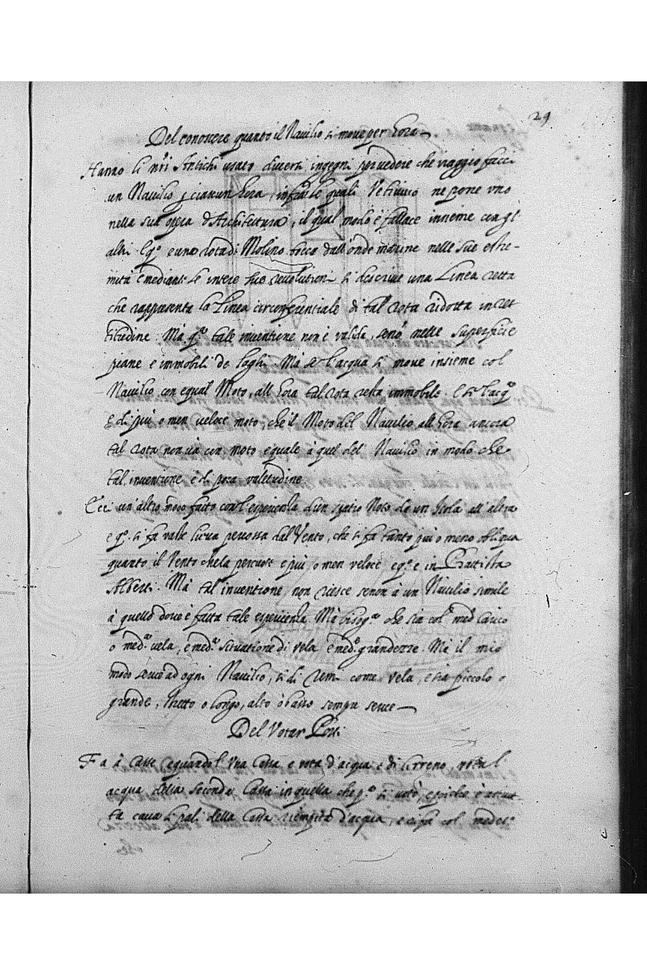 29
Del conoscere quanto il Navilio si move per hora
Hanno li nri Antichi usato diversi ingegni per vedere che viaggio facci
un Navilio p ciascun hora, infra le quali Vetruvio ne pone uno
nella sua opera d'Architettura, il qual modo è fallace insieme con gl
altri. Eqo e una rota di Molino tocca dall'onde marine nelle sue estre-
mità e mediante le intere sue revolution si descrive una Linea retta
che rappresenta la Linea circonferentiale di tal rota ridotta in ret
titudine. Mà qo tale inventione non è valida, senò nelle superficie
piane e immobili de leghi. Mà se l'acqua si move insieme col
Navilio con equal Moto, all'hora tal rota resta immobile. E se l'acqa
e di piu o men veloce moto, che il Moto del Navilio, all'hora ancora
tal rota non ha con moto equale à quel del Navilio in modo che
tal inventione è di poca valitudine
Ecci un'altro modo fatto con l'esperienza d'un spatio Noto da un Isola all'altra
e qo si fa
percossa dal Vento, che si fa tanto piu o meno obliqua
quanto il Vento che la percuote e piu o men veloce e qo e in Battista
Alberti. Mà tal inventione non riesce senon a un Navilio simile
à quello dove è fatta tale esperienza. Mà bisoga che sia col medo carico
o meda vela, e meda situatione di vela e medo grandezze. Mà il mio
modo serve ad ogni Navilio, si di remi come vela, e sia piccolo o
grande, stretto o longo, alto ò basso sempre serve
Del Votar Porti
Fa à Casse e quando l'Una Cassa e vota d'acqua e di terreno, vota l
acqua della seconda Cassa in quella che qo si votò, e poiche
ta cava li pali della Cassa riempita d'acqua, e
col medeso